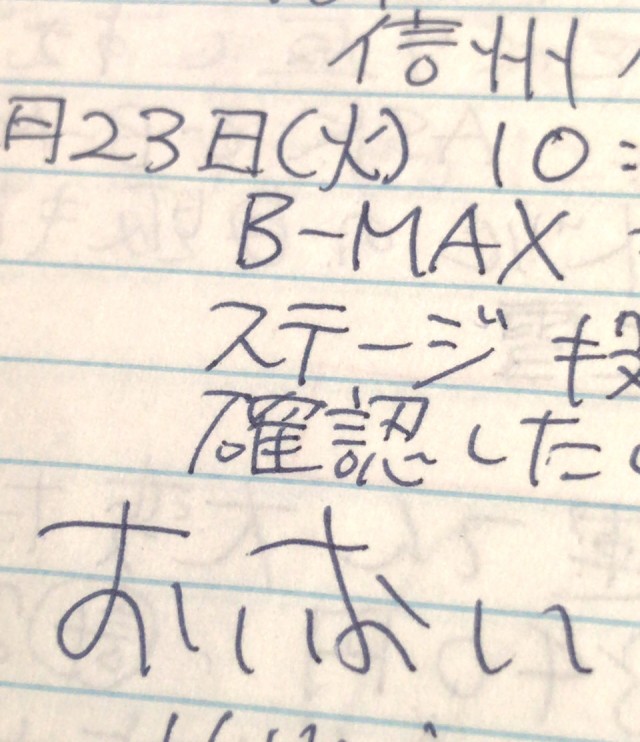 信州
月23日(火) 10:
B-MAX
ステージ
確認した
おいおい